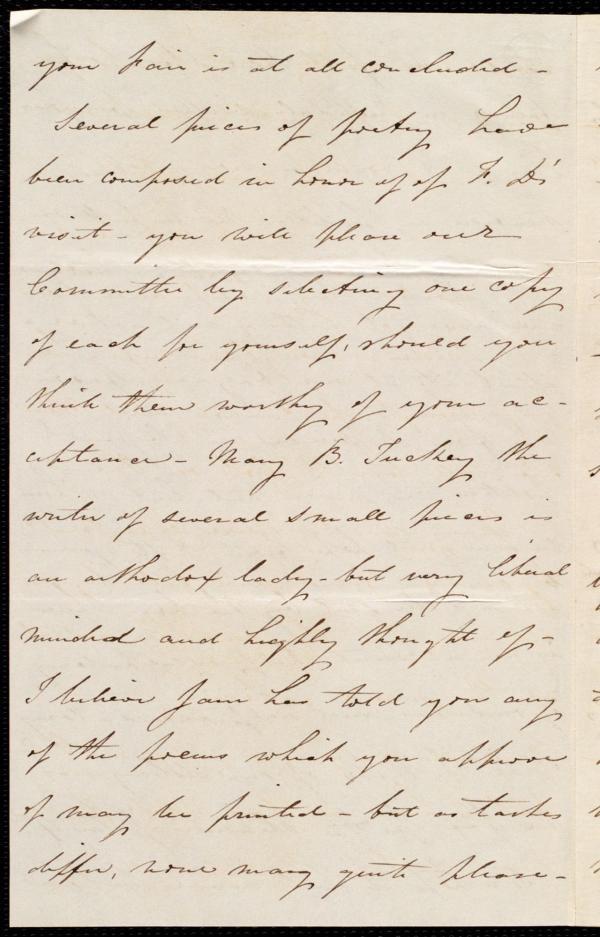 your Fair is at all concluded -
Several pieces of poetry have
been composed in honor of of F. D's
visit - you will please our
Committee by selecting one copy
of each for yourself, should you
think them worthy of your ac-
ceptance - Mary B. Tuckey the
writer of several small pieces is
an orthodox lady - but very liberal
minded and highly thought of -
I believe Jane has told you any
of the poems which you approve
of may be printed - but as tastes
differ, none may quite please -